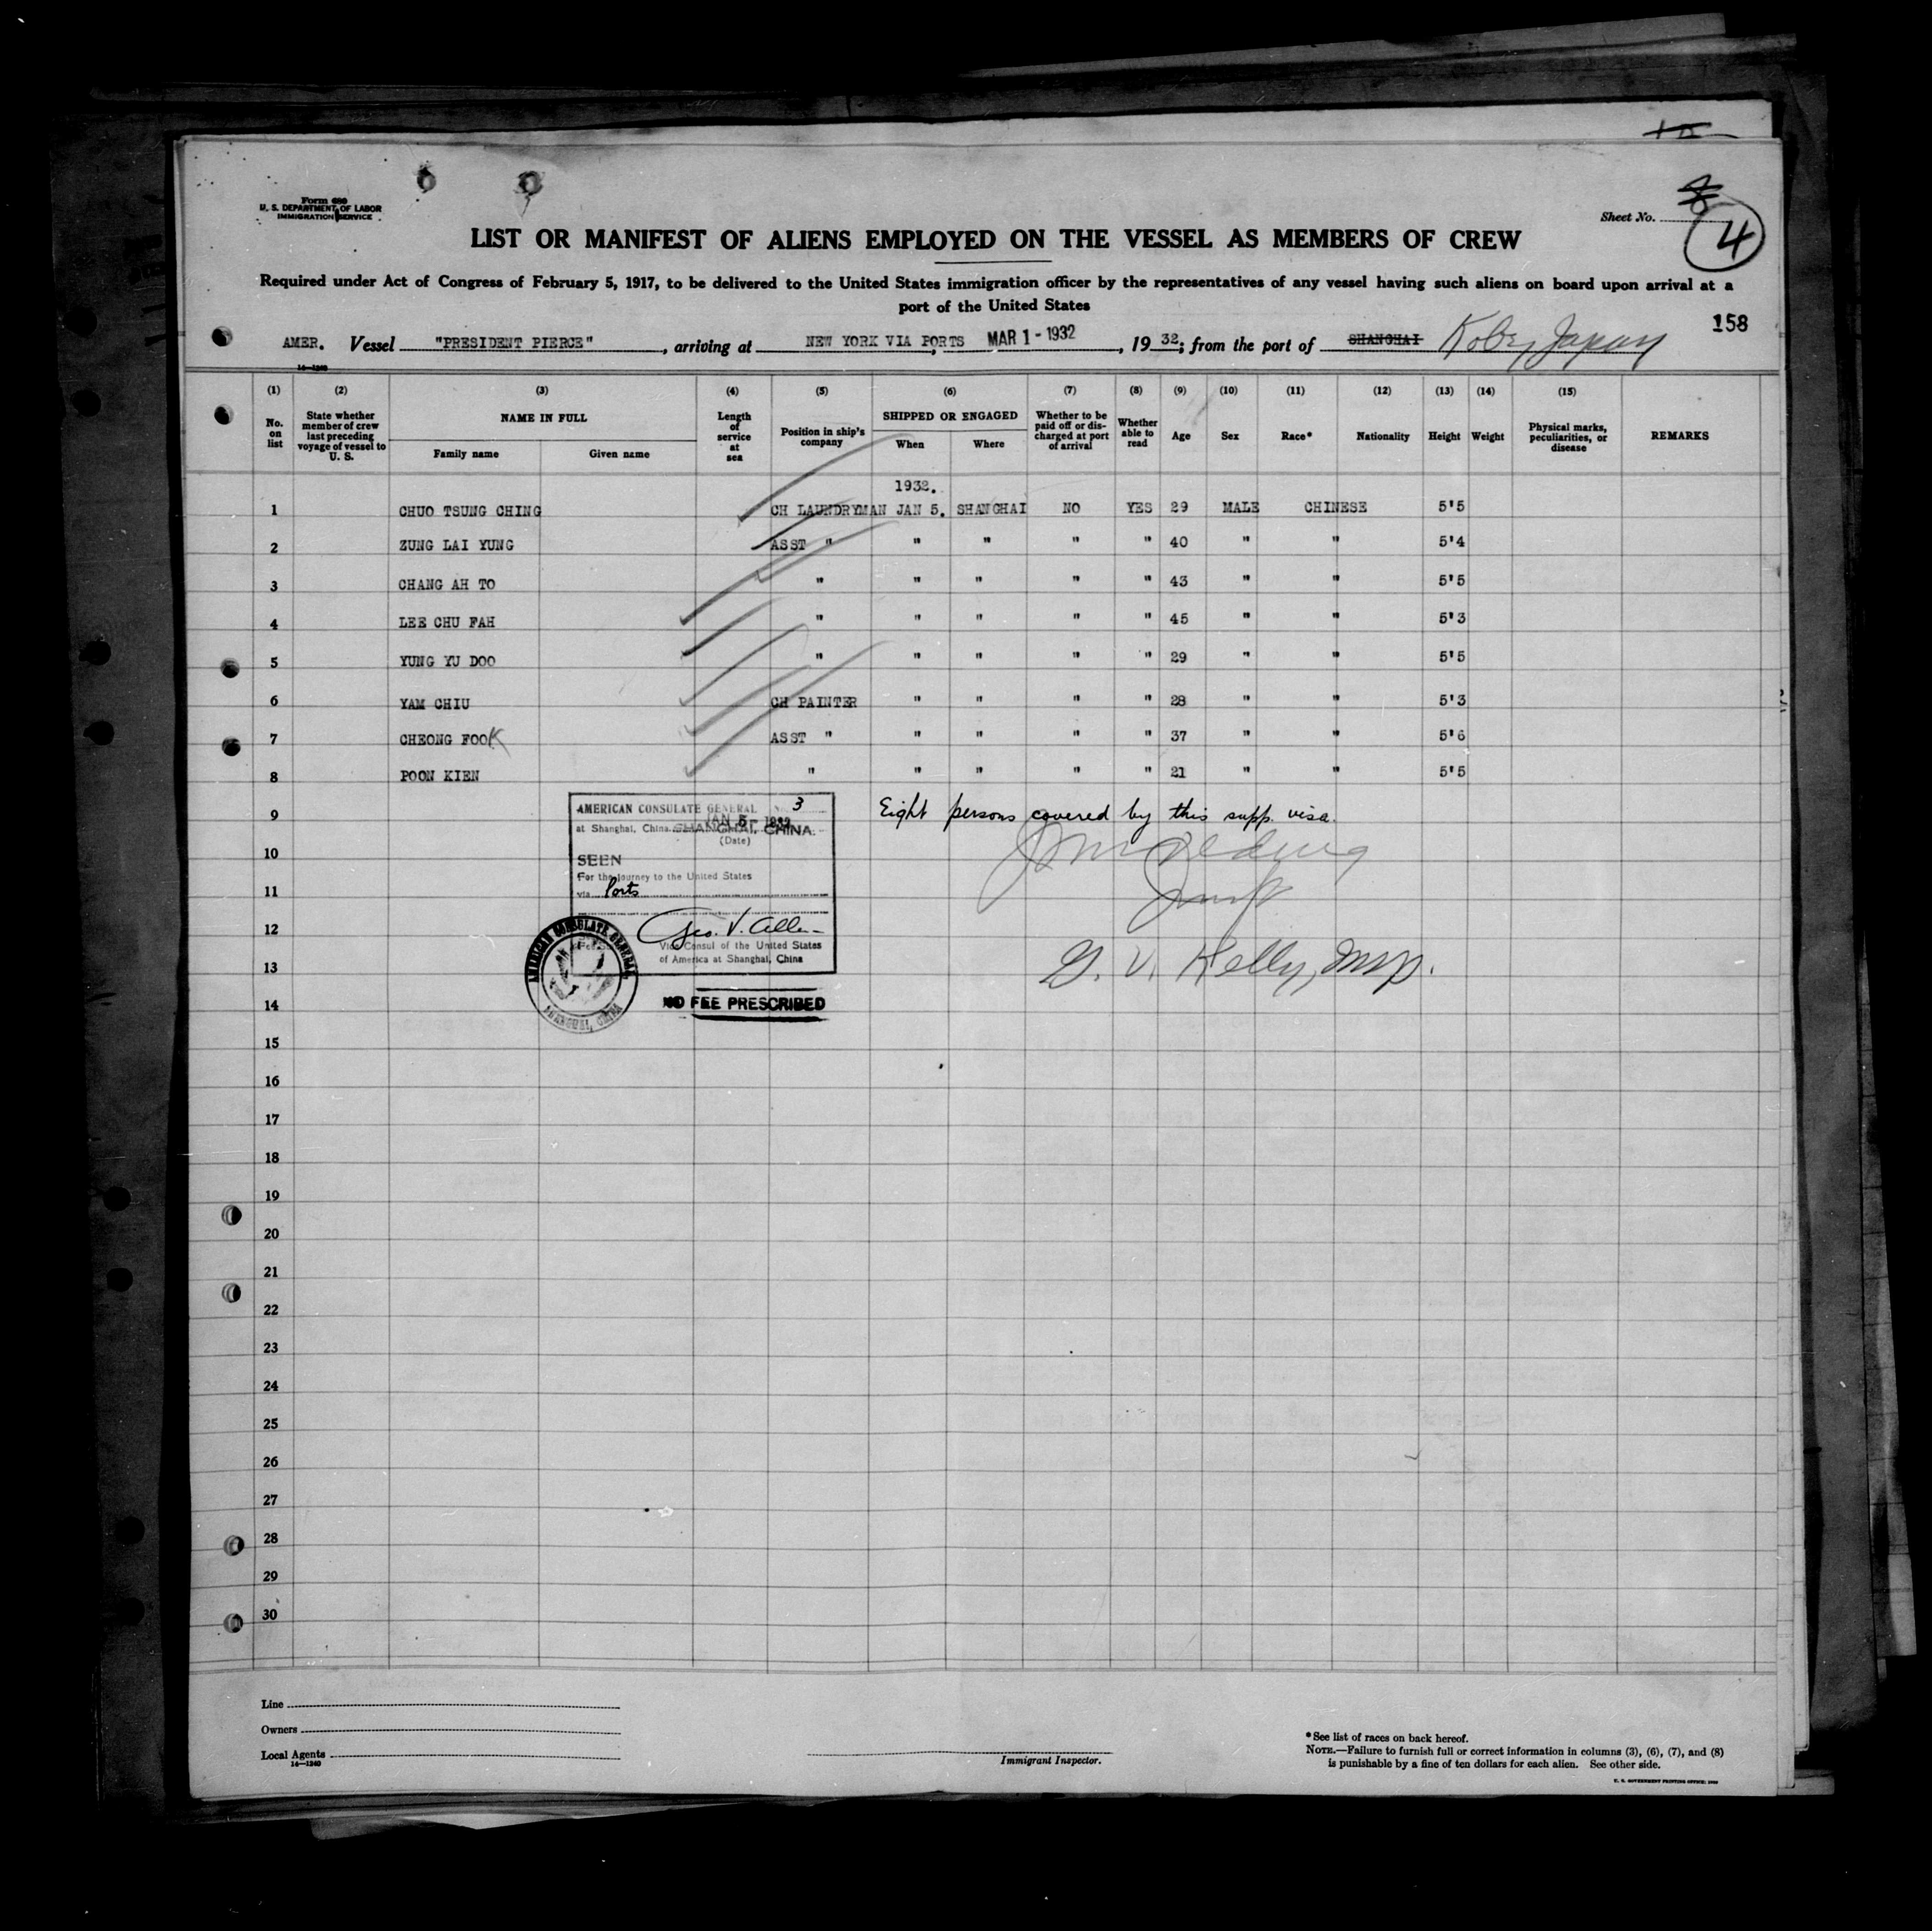 Form 680
U. S. DEPARTMENT OF LABOR
IMMIGRATION SERVICE
Sheet No. 4
LIST OR MANIFEST OF ALIENS EMPLOYED ON THE VESSEL AS MEMBERS OF CREW
Required under Act of Congress of February 5, 1917, to be delivered to the United States immigration officer by the representatives of any vessel having such aliens on board upon arrival at a
port of the United States
158
AMER. Vessel "PRESIDENT PIERCE", arriving at NEW YORK VIA PORTS, MAR 1-1932, 1932; from the port of SHANGHAI Kobe, Japan
14—1240
(1) (2) (3) (4) (5) (6) (7) (8) (9) (10) (11) (12) (13) (14) (15)
No. on list
State whether member of crew last preceding voyage of vessel to U. S.
NAME IN FULL
Family name Given name
Length of service at sea
Position in ship's company
SHIPPED OR ENGAGED
When Where
Whether to be paid off or discharged at port of arrival
Whether able to read
Age Sex Race* Nationality Height Weight
Physical marks, peculiarities, or disease
REMARKS
1932.
1 CHUO TSUNG CHING CH LAUNDRYMAN JAN 5. SHANGHAI NO YES 29 MALE CHINESE 5'5
2 ZUNG LAI YUNG ASST " " " " " 40 " " 5'4
3 CHANG AH TO " " " " " 43 " " 5'5
4 LEE CHU FAH " " " " " 45 " " 5'3
5 YUNG YU DOO " " " " " 29 " " 5'5
6 YAM CHIU CH PAINTER " " " " 28 " " 5'3
7 CHEONG FOOK ASST " " " " " 37 " " 5'6
8 POON KIEN " " " " " 21 " " 5'5
9
10
11
12
13
14
15
16
17
18
19
20
21
22
23
24
25
26
27
28
29
30
AMERICAN CONSULATE GENERAL No. 3
at Shanghai, China. JAN 5 - 1932 SHANGHAI, CHINA.
(Date)
SEEN
For the journey to the United States
via Ports
Geo. V. Allen
Vice Consul of the United States
of America at Shanghai, China
AMERICAN CONSULATE GENERAL
SHANGHAI, CHINA
NO FEE PRESCRIBED
Eight persons covered by this supp. visa.
G. V. Kelly, Insp.
Line
Owners
Local Agents
14—1240
Immigrant Inspector.
* See list of races on back hereof.
NOTE.—Failure to furnish full or correct information in columns (3), (6), (7), and (8)
is punishable by a fine of ten dollars for each alien. See other side.